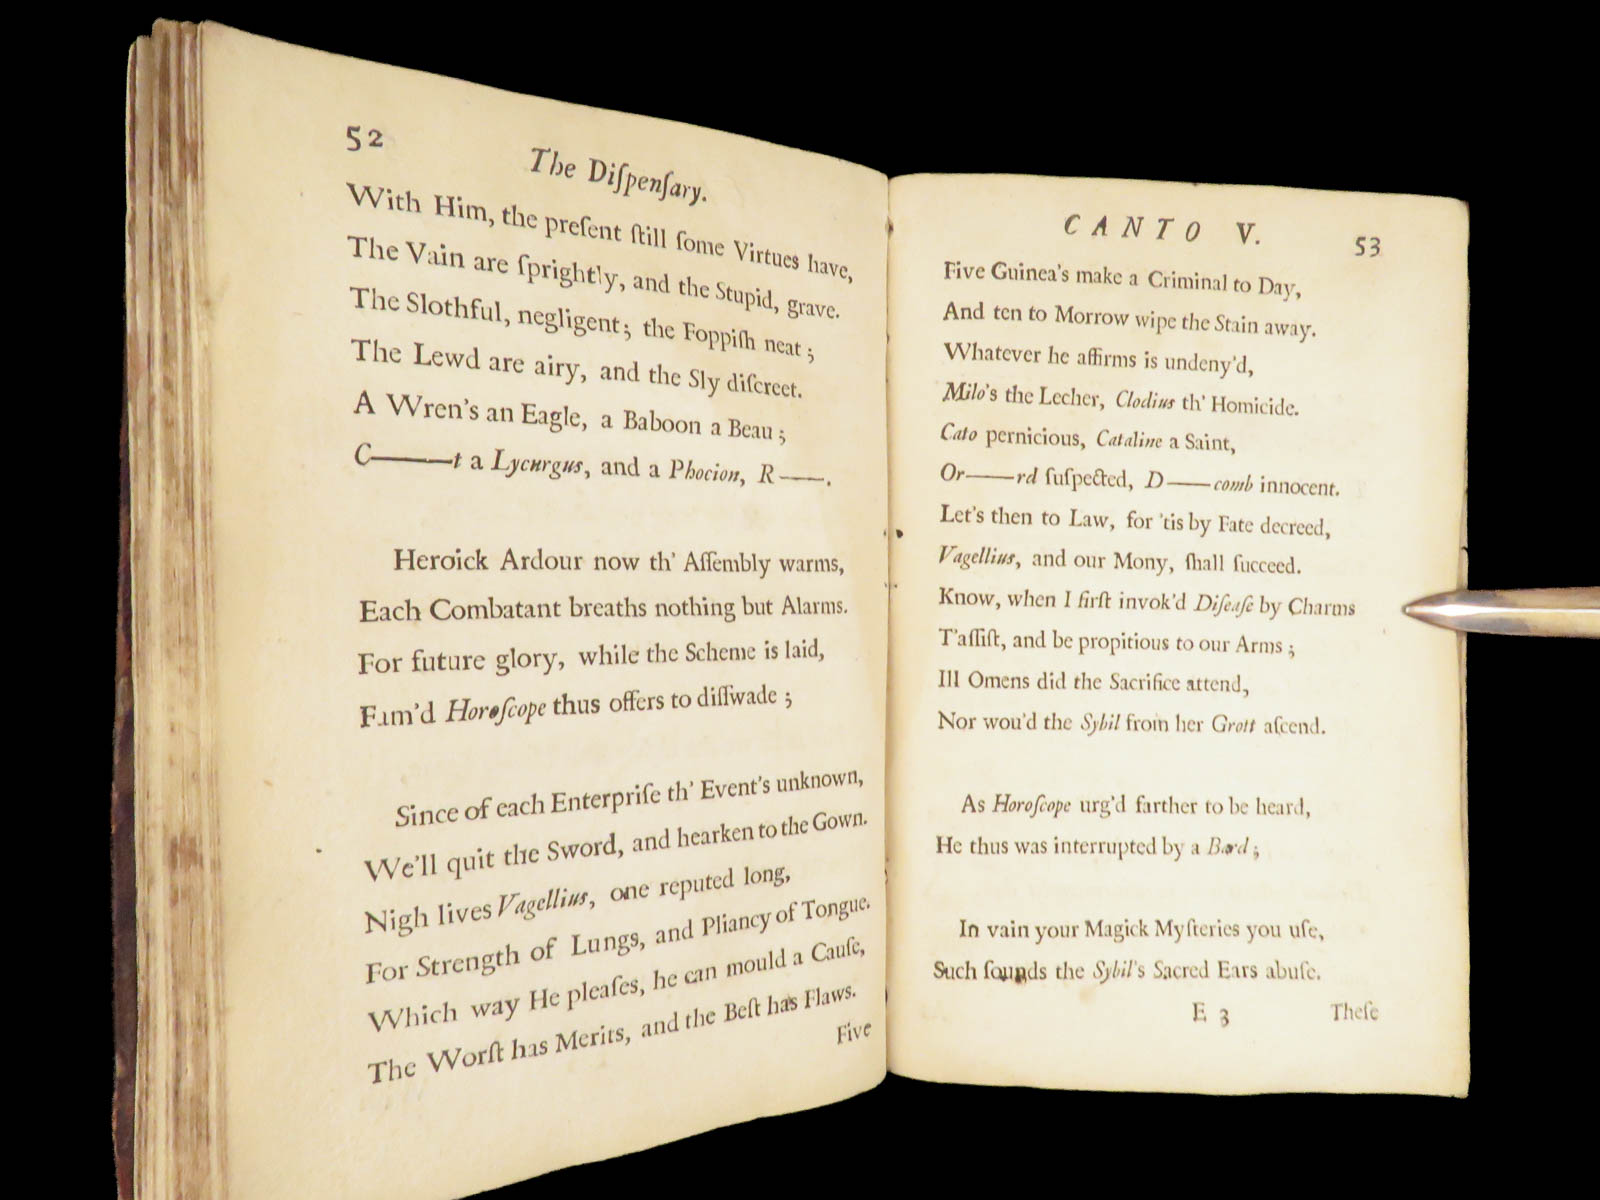 52
The Diſpenſary.
With Him, the preſent ſtill ſome Virtues have,
The Vain are ſprightly, and the Stupid, grave.
The Slothful, negligent; the Foppiſh neat;
The Lewd are airy, and the Sly diſcreet.
A Wren's an Eagle, a Baboon a Beau;
C——t a Lycurgus, and a Phocion, R——.
Heroick Ardour now th' Aſſembly warms,
Each Combatant breaths nothing but Alarms.
For future glory, while the Scheme is laid,
Fam'd Horoſcope thus offers to diſſwade;
Since of each Enterpriſe th' Event's unknown,
We'll quit the Sword, and hearken to the Gown.
Nigh lives Vagellius, one reputed long,
For Strength of Lungs, and Pliancy of Tongue.
Which way He pleaſes, he can mould a Cauſe,
The Worſt has Merits, and the Beſt has Flaws.
Five
CANTO V.
53
Five Guinea's make a Criminal to Day,
And ten to Morrow wipe the Stain away.
Whatever he affirms is undeny'd,
Milo's the Lecher, Clodius th' Homicide.
Cato pernicious, Cataline a Saint,
Or——rd ſuſpected, D——comb innocent.
Let's then to Law, for 'tis by Fate decreed,
Vagellius, and our Mony, ſhall ſucceed.
Know, when I firſt invok'd Diſeaſe by Charms
T'aſſiſt, and be propitious to our Arms;
Ill Omens did the Sacrifice attend,
Nor wou'd the Sybil from her Grott aſcend.
As Horoſcope urg'd farther to be heard,
He thus was interrupted by a Bard;
In vain your Magick Myſteries you uſe,
Such ſounds the Sybil's Sacred Ears abuſe.
E 3
Theſe